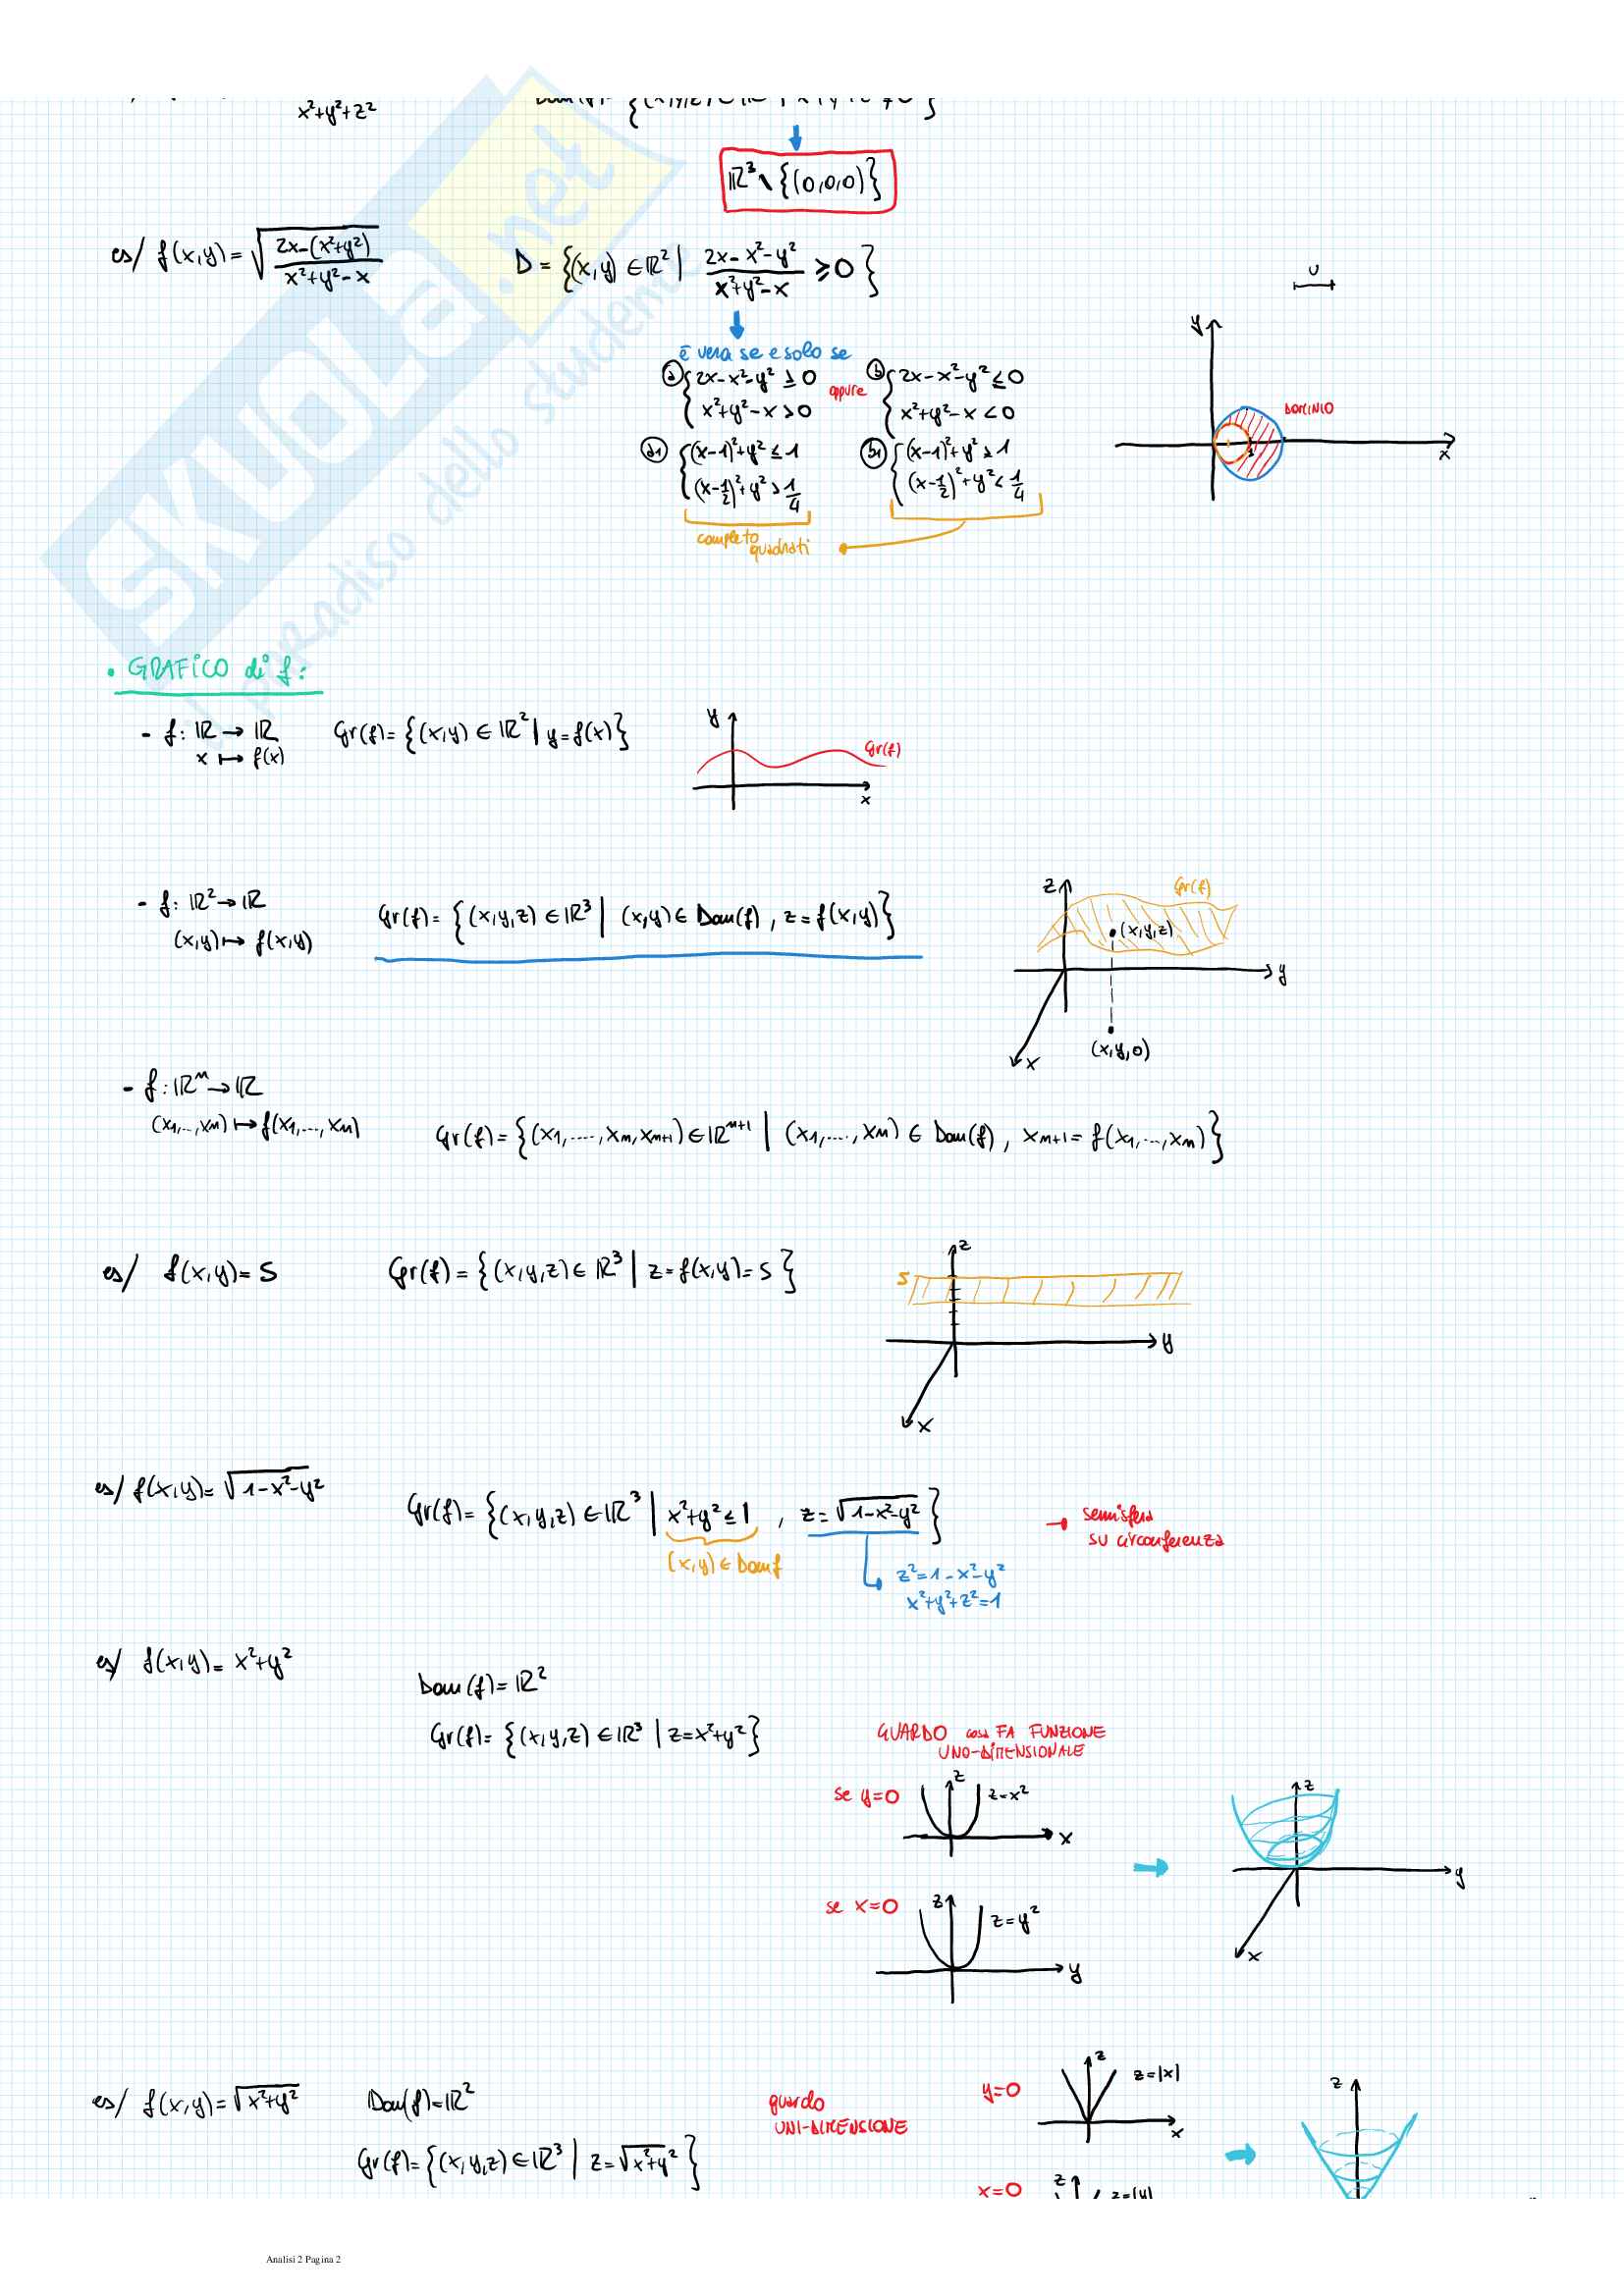 x²+y²+z²
ℝ³∖{(0,0,0)}
es/ f(x,y)=√((2x-(x²+y²))/(x²+y²-x))
D = {(x,y) ∈ ℝ² | (2x-x²-y²)/(x²+y²-x) ≥ 0}
U
è vera se e solo se
ⓐ { 2x-x²-y² ≥ 0
x²+y²-x > 0
oppure
ⓑ { 2x-x²-y² ≤ 0
x²+y²-x < 0
y
x
DOMINIO
1
a1 { (x-1)²+y² ≤ 1
(x-1/2)²+y² > 1/4
b1 { (x-1)²+y² ≥ 1
(x-1/2)²+y² < 1/4
completo quadrati
SKUOLA.net
il paradiso dello studente
• GRAFICO di f:
- f: ℝ → ℝ
x ↦ f(x)
Gr(f)= {(x,y) ∈ ℝ² | y=f(x)}
y
Gr(f)
x
- f: ℝ² → ℝ
(x,y) ↦ f(x,y)
Gr(f)= {(x,y,z) ∈ ℝ³ | (x,y) ∈ Dom(f), z=f(x,y)}
z
Gr(f)
(x,y,z)
y
(x,y,0)
x
- f: ℝⁿ → ℝ
(x1,..,xn) ↦ f(x1,...,xn)
Gr(f)= {(x1,....,xn,xn+1) ∈ ℝⁿ⁺¹ | (x1,....,xn) ∈ Dom(f), xn+1 = f(x1,...,xn)}
es/ f(x,y)= 5
Gr(f) = {(x,y,z) ∈ ℝ³ | z=f(x,y)=5}
z
5
y
x
es/ f(x,y)= √(1-x²-y²)
Gr(f)= {(x,y,z) ∈ ℝ³ | x²+y² ≤ 1, z=√(1-x²-y²)}
→ semisfera
su circonferenza
(x,y) ∈ Dom f
z²=1-x²-y²
x²+y²+z²=1
es/ f(x,y)= x²+y²
Dom(f)= ℝ²
Gr(f)= {(x,y,z) ∈ ℝ³ | z=x²+y²}
GUARDO cosa FA FUNZIONE
UNO-DIMENSIONALE
se y=0
z
z=x²
x
z
y
x
se x=0
z
z=y²
y
es/ f(x,y)=√(x²+y²)
Dom(f)=ℝ²
Gr(f)= {(x,y,z) ∈ ℝ³ | z=√(x²+y²)}
guardo
UNI-DIMENSIONE
y=0
z
z=|x|
x
z
x=0
z
z=|y|
Analisi 2 Pagina 2